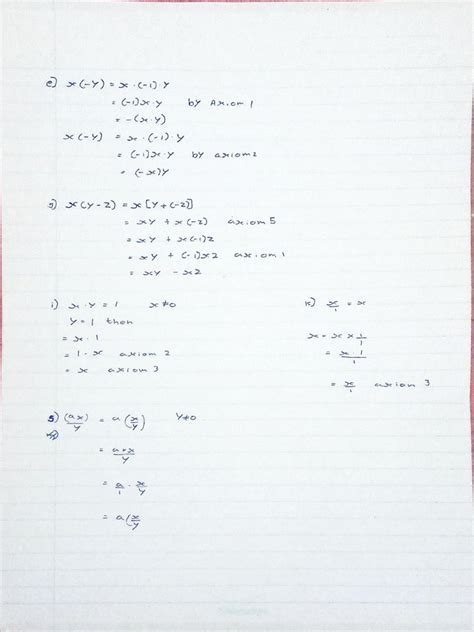 e) x(-y) = x · (-1) y
= (-1)x · y by Axiom 1
= -(x·y)
x(-y) = x · (-1) · y
= (-1)x · y by axiom 2
= (-x)y
g) x(y-z) = x[y+(-z)]
= xy + x(-z) axiom 5
= xy + x(-1)z
= xy + (-1)xz axiom 1
= xy - xz
i) x·y = 1 x≠0
y = 1 then
= x · 1
= 1 · x axiom 2
= x axiom 3
k) x/1 = x
x = x × 1/1
= x·1/1
= x/1 axiom 3
s) (ax)/y = a(x/y) y≠0
= a×x/y
= a/1 · x/y
= a(x/y